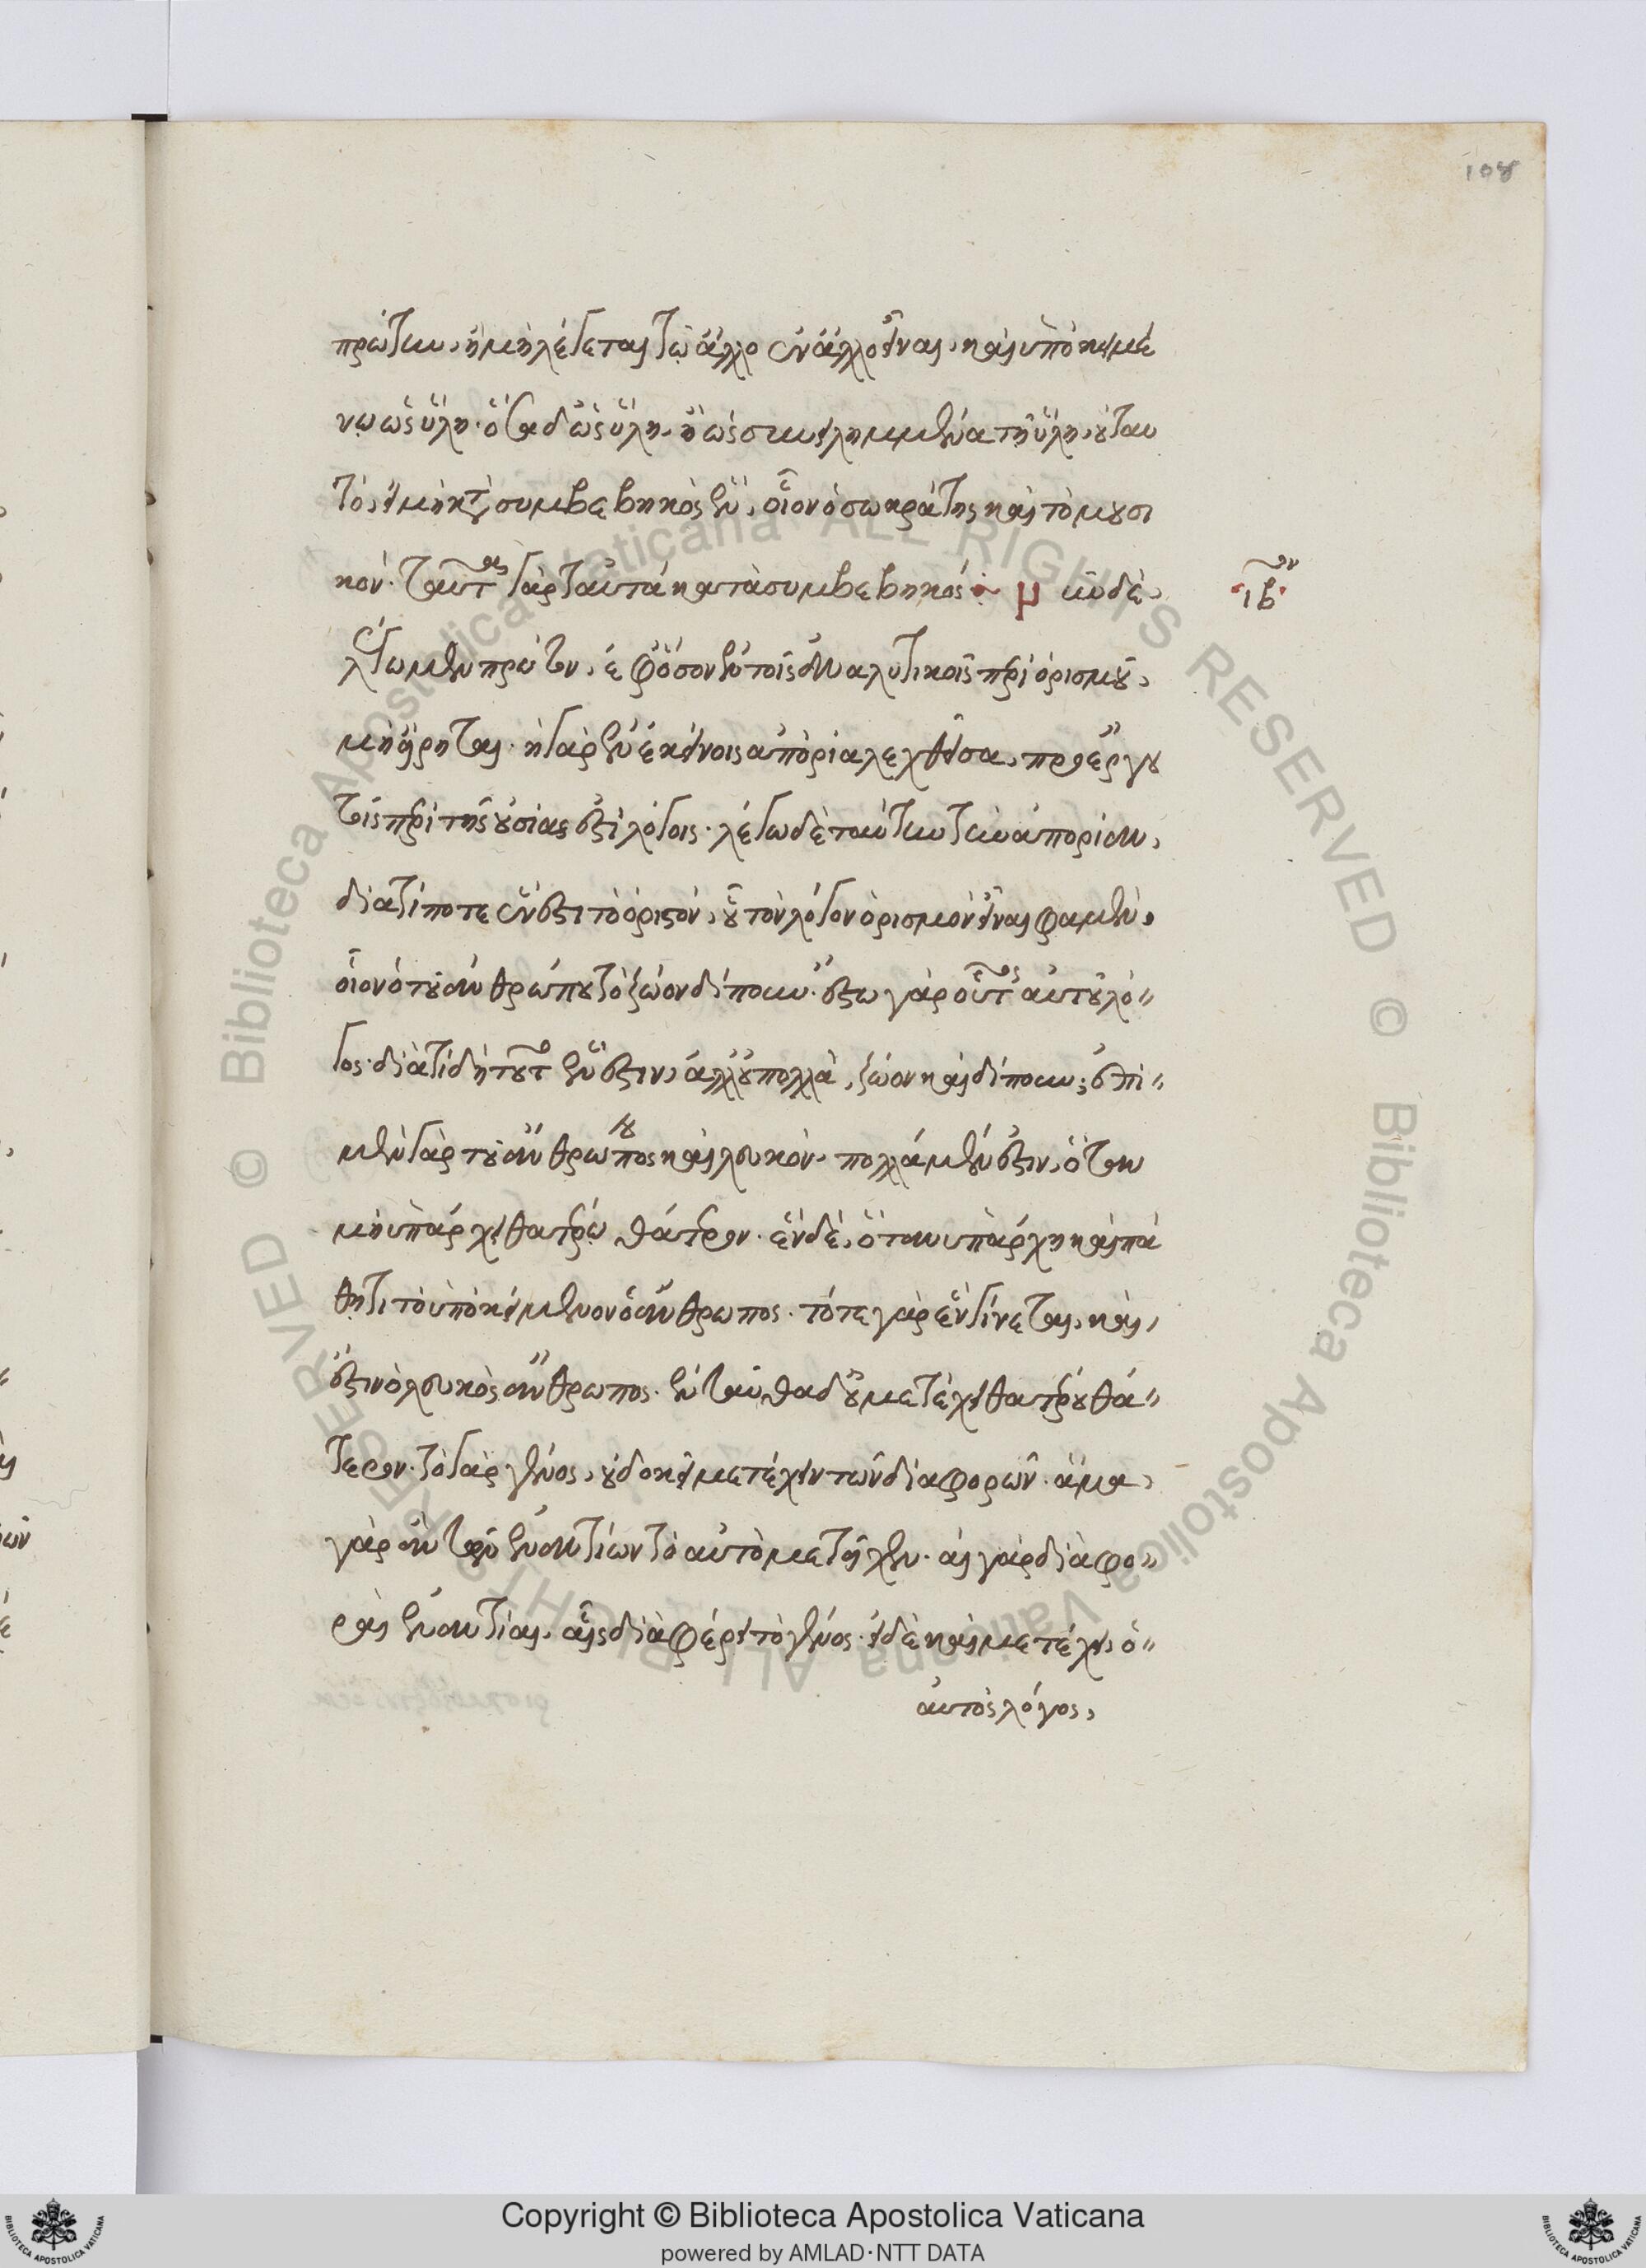 πρώτην, ἢ μὴ λέγεται τῷ ἄλλο ἐν ἄλλο εἶναι, καὶ ὑποκειμέ
νῳ ὡς ὕλη. ὅσα δ' ὡς ὕλη, ἢ ὡς συνειλημμένα τῇ ὕλη, οὐ ταυ
τό, εἰ μὴ κατὰ συμβεβηκὸς ἕν, οἷον ὁ σωκράτης καὶ τὸ μουσι
κόν. ταῦτα γὰρ ταὐτά κατὰ συμβεβηκός· μ ῦν δὲ,
ιβον
λέγωμεν πρῶτον, ἐφ' ὅσον ἐν τοῖς ἀναλυτικοῖς περὶ ὁρισμοῦ,
μὴ εἴρηται. ἡ γὰρ ἐν ἐκείνοις ἀπορία λεχθεῖσα, προέργου
τοῖς περὶ τῆς οὐσίας ἐστὶ λόγοις. λέγω δὲ ταύτην τὴν ἀπορίαν,
διατί ποτε ἕν ἐστι τὸ ὁριστόν, οὗ τὸν λόγον ὁρισμὸν εἶναι φαμὲν,
οἷον ὁ τοῦ ἀνθρώπου τὸ ζῷον δίπουν. ἔστω γὰρ οὗτος αὐτοῦ λό-
γος. διατί δὴ τοῦτο ἕν ἔστιν, ἀλλ' οὐ πολλὰ, ζῷον καὶ δίπουν; ἐπὶ-
μὲν γὰρ τοῦ ἄνθρωπος καὶ λευκὸν. πολλά μὲν ἔστιν, ὅταν
μὴ ὑπάρχει θατέρῳ θάτερον. ἓν δὲ, ὅταν ὑπάρχη καὶ πά
θῃ τι τὸ ὑποκείμενον ὁ ἄνθρωπος. τότε γὰρ ἓν γίνεται, καὶ,
ἔστιν ὁ λευκὸς ἄνθρωπος. ἐνταῦθα δ' οὐ μετέχει θατέρου θά-
τερον. τὸ γὰρ γένος, οὐ δοκεῖ μετέχειν τῶν διαφορῶν. ἅμα,
γὰρ ἂν τῶν ἐναντίων τὸ αὐτὸ μετεῖχεν. αἱ γὰρ διαφο-
ραὶ ἐναντίαι, αἷς διαφέρει τὸ γένος. εἰ δὲ καὶ μετέχει, ὁ-
αὐτὸς λόγος,